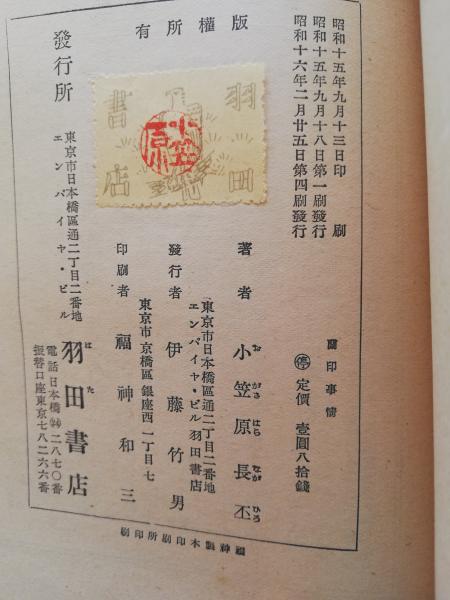 昭和十五年九月十三日印刷
昭和十五年九月十八日第一刷發行
昭和十六年二月廿五日第四刷發行
蘭印事情
停 定價 壹圓八拾錢
版權所有
羽田書店
小笠原
著者 小笠原長丕
お がさ はら なが ひろ
東京市日本橋區通二丁目二番地
エンパイヤ・ビル羽田書店
發行者 伊藤竹男
東京市京橋區銀座西一丁目七
印刷者 福神和三
發行所
東京市日本橋區通二丁目二番地
エンパイヤ・ビル
羽田書店
はた
電話日本橋㉔二八七〇番
振替口座東京七八二六六番
福神製本印刷所印刷